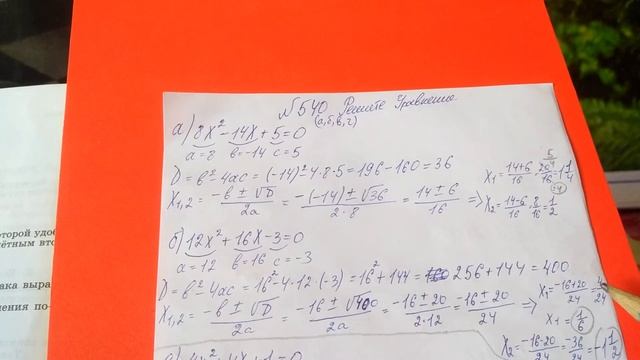 №540 Решите Уравнение
(а,б,в,г)
а) 8x² - 14x + 5 = 0
a = 8 b = -14 c = 5
D = b² - 4ac = (-14)² - 4·8·5 = 196 - 160 = 36
X₁,₂ = (-b ± √D)/2a = (-(-14) ± √36)/(2·8) = (14 ± 6)/16 =>
X₁ = (14+6)/16 = 20/16 = 1 1/4
X₂ = (14-6)/16 = 8/16 = 1/2
б) 12x² + 16x - 3 = 0
a = 12 b = 16 c = -3
D = b² - 4ac = 16² - 4·12·(-3) = 16² + 144 = 256 + 144 = 400
X₁,₂ = (-b ± √D)/2a = (-16 ± √400)/2a = (-16 ± 20)/(2·12) = (-16 ± 20)/24 =>
X₁ = (-16+20)/24 = 4/24
X₁ = 1/6
X₂ = (-16-20)/24 = -36/24 = -1 1/2
оторой удов
чётным вто
ака выра
нения по-